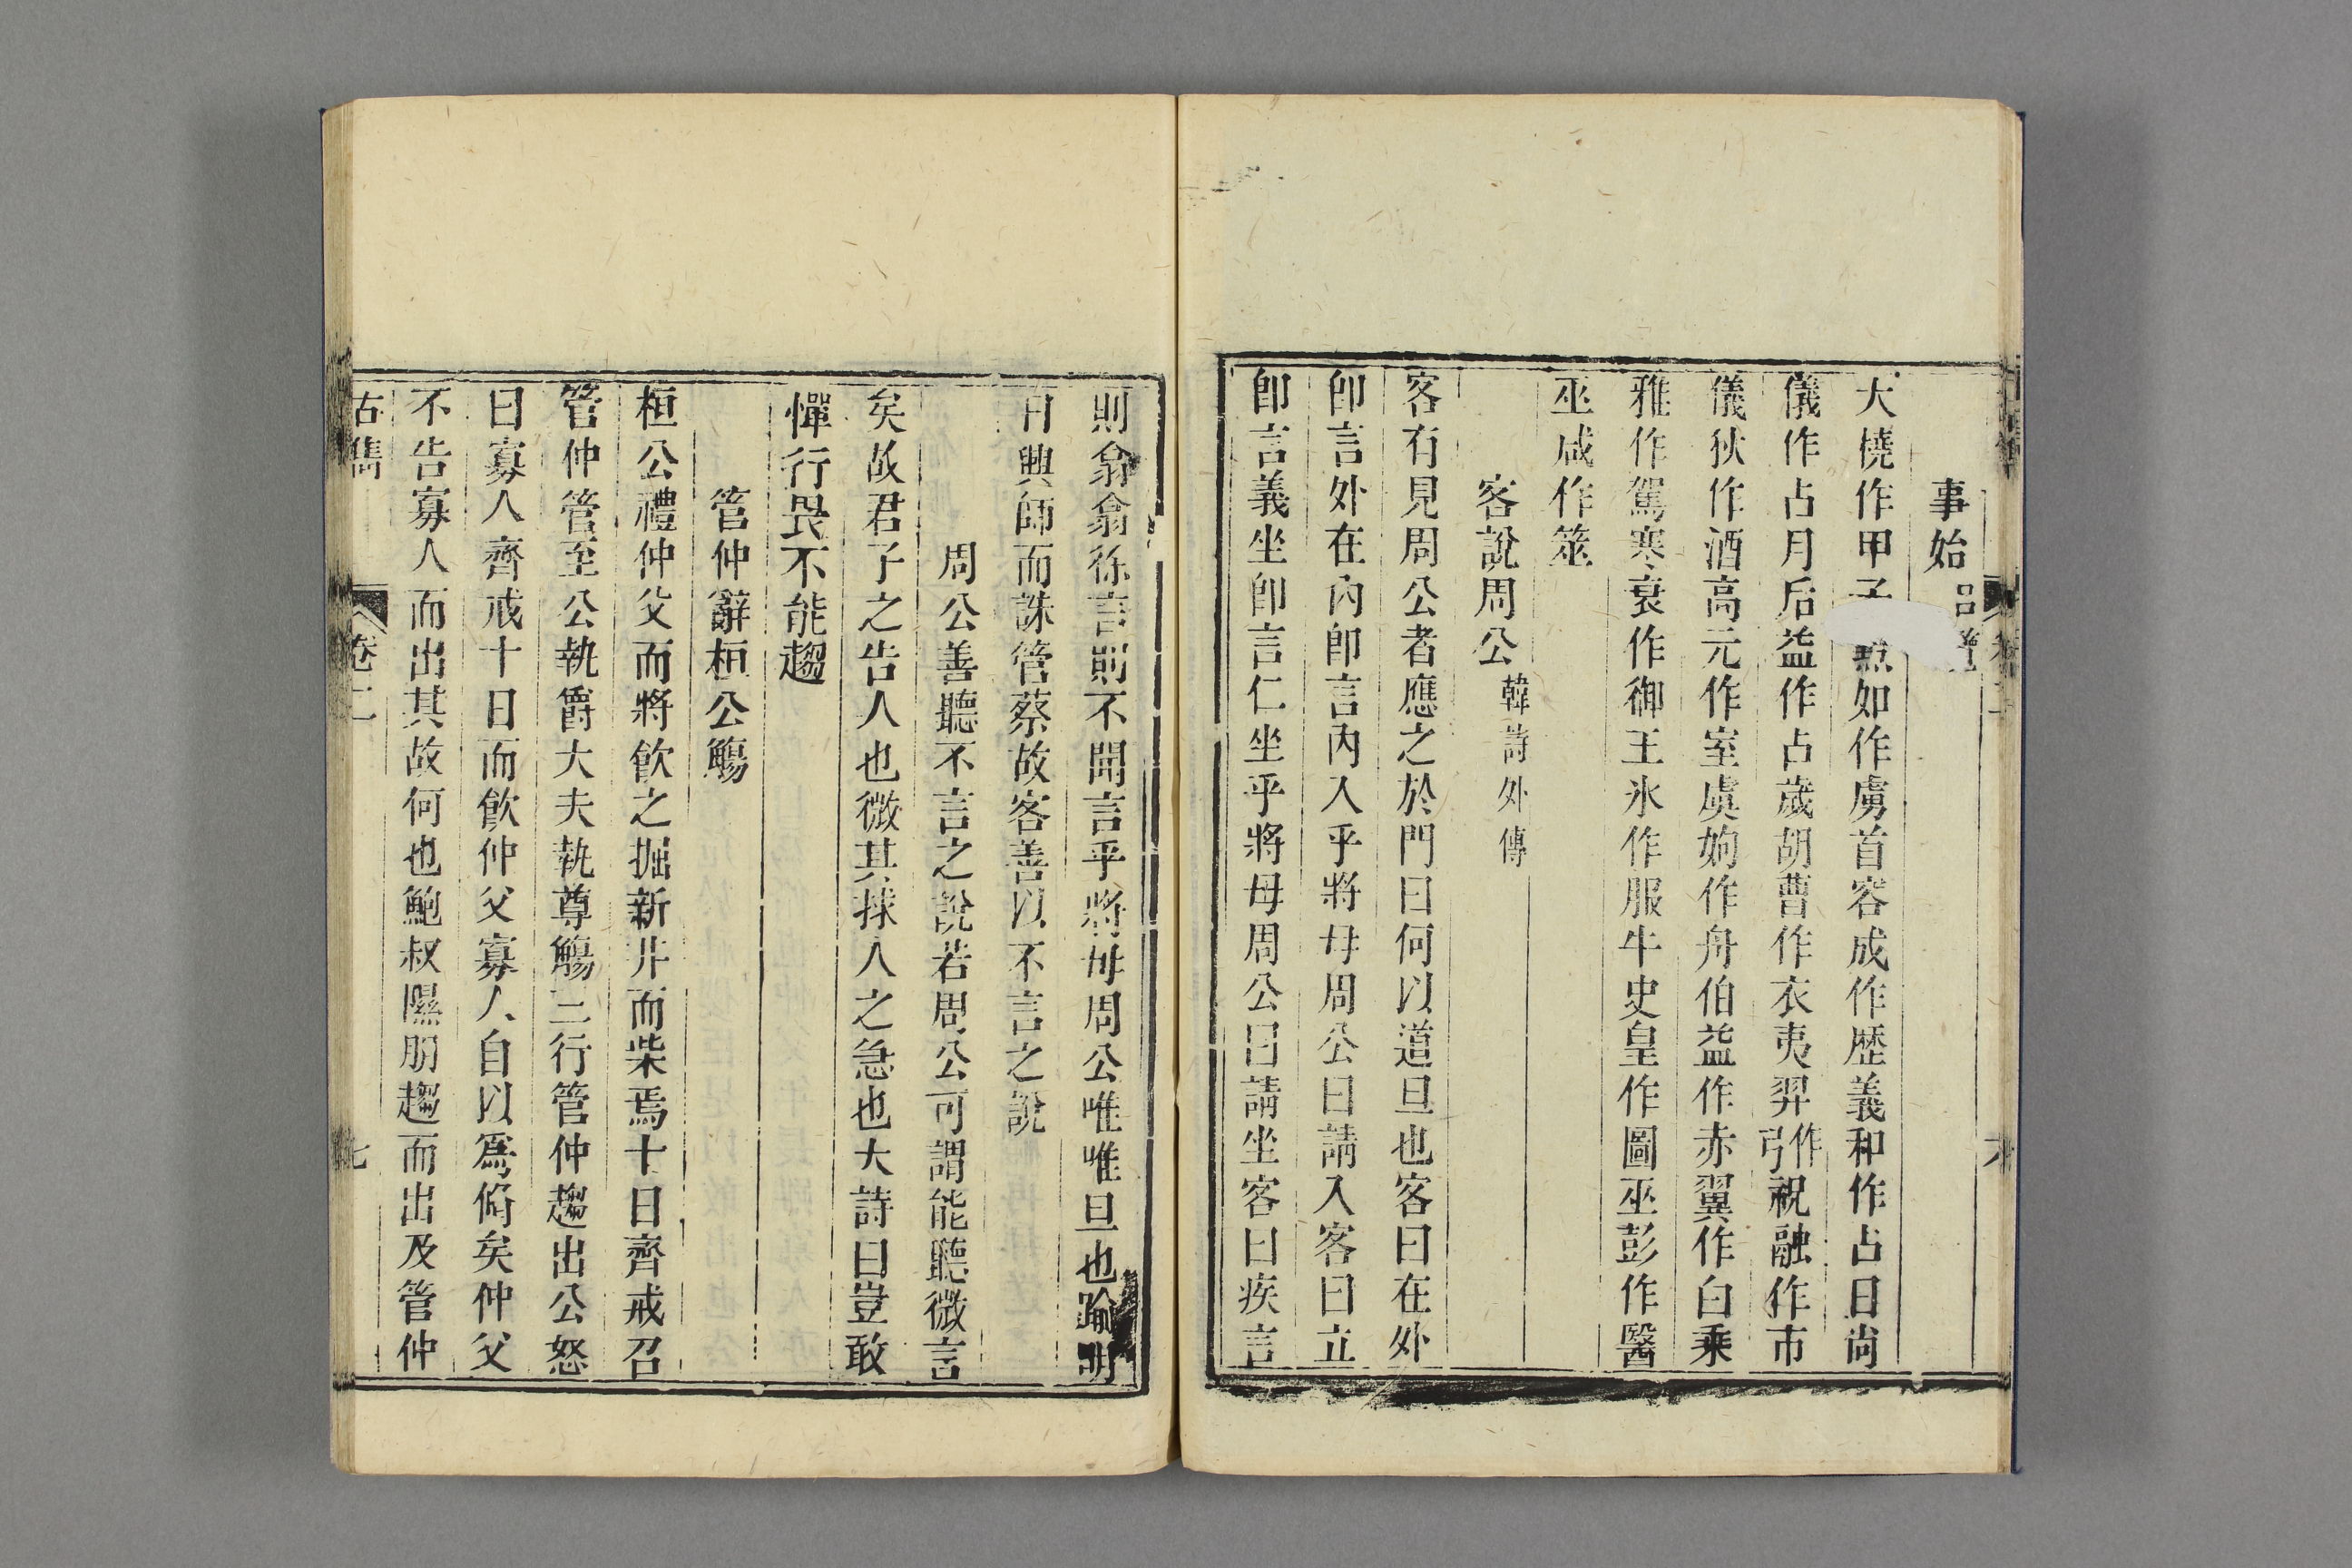 事始
大橈作甲子 如作虜首容成作歷義和作占日尚
儀作占月后益作占歲胡曹作衣夷羿作弓祝融作市
儀狄作酒高元作室虞姁作舟伯益作赤翼作臼乘
雅作駕寒衰作御王氷作服牛史皇作圖巫彭作醫
巫咸作筮
客說周公韓詩外傳
客有見周公者應之於門曰何以道旦也客曰在外
卽言外在內卽言內入乎將毋周公曰請入客曰立
卽言義坐卽言仁坐乎將毋周公曰請坐客曰疾言
則翕翕徐言則不聞言乎將毋周公唯唯旦也踰明
日興師而誅管蔡故客善以不言之說
周公善聽不言之說若周公可謂能聽微言
矣故君子之告人也微其捄人之急也大詩曰豈敢
憚行畏不能趨
管仲辭桓公觴
桓公禮仲父而將飲之掘新井而柴焉十日齊戒召
管仲管至公執爵大夫執尊觴三行管仲趨出公怒
曰寡人齊戒十日而飲仲父寡人自以爲脩矣仲父
不告寡人而出其故何也鮑叔隰朋趨而出及管仲
古雋
卷二
七